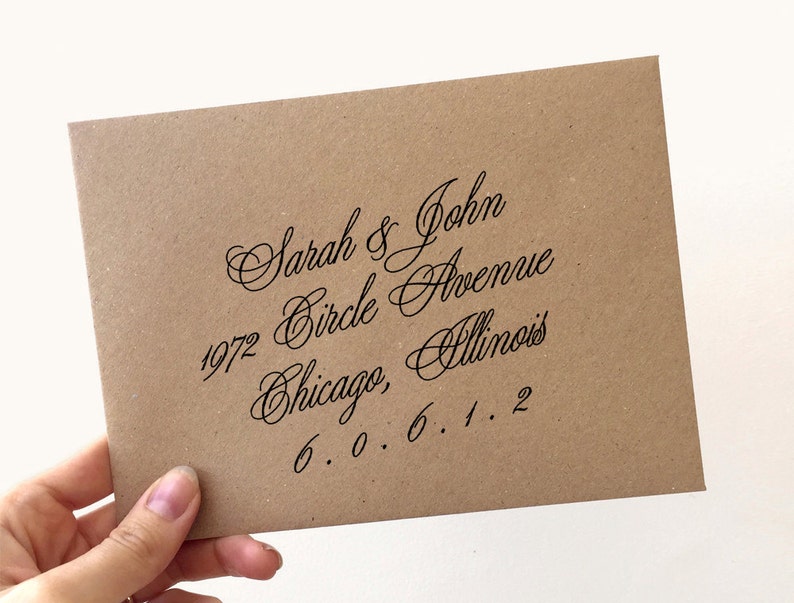 Sarah & John
1972 Circle Avenue
Chicago, Illinois
6 . 0 . 6 . 1 . 2